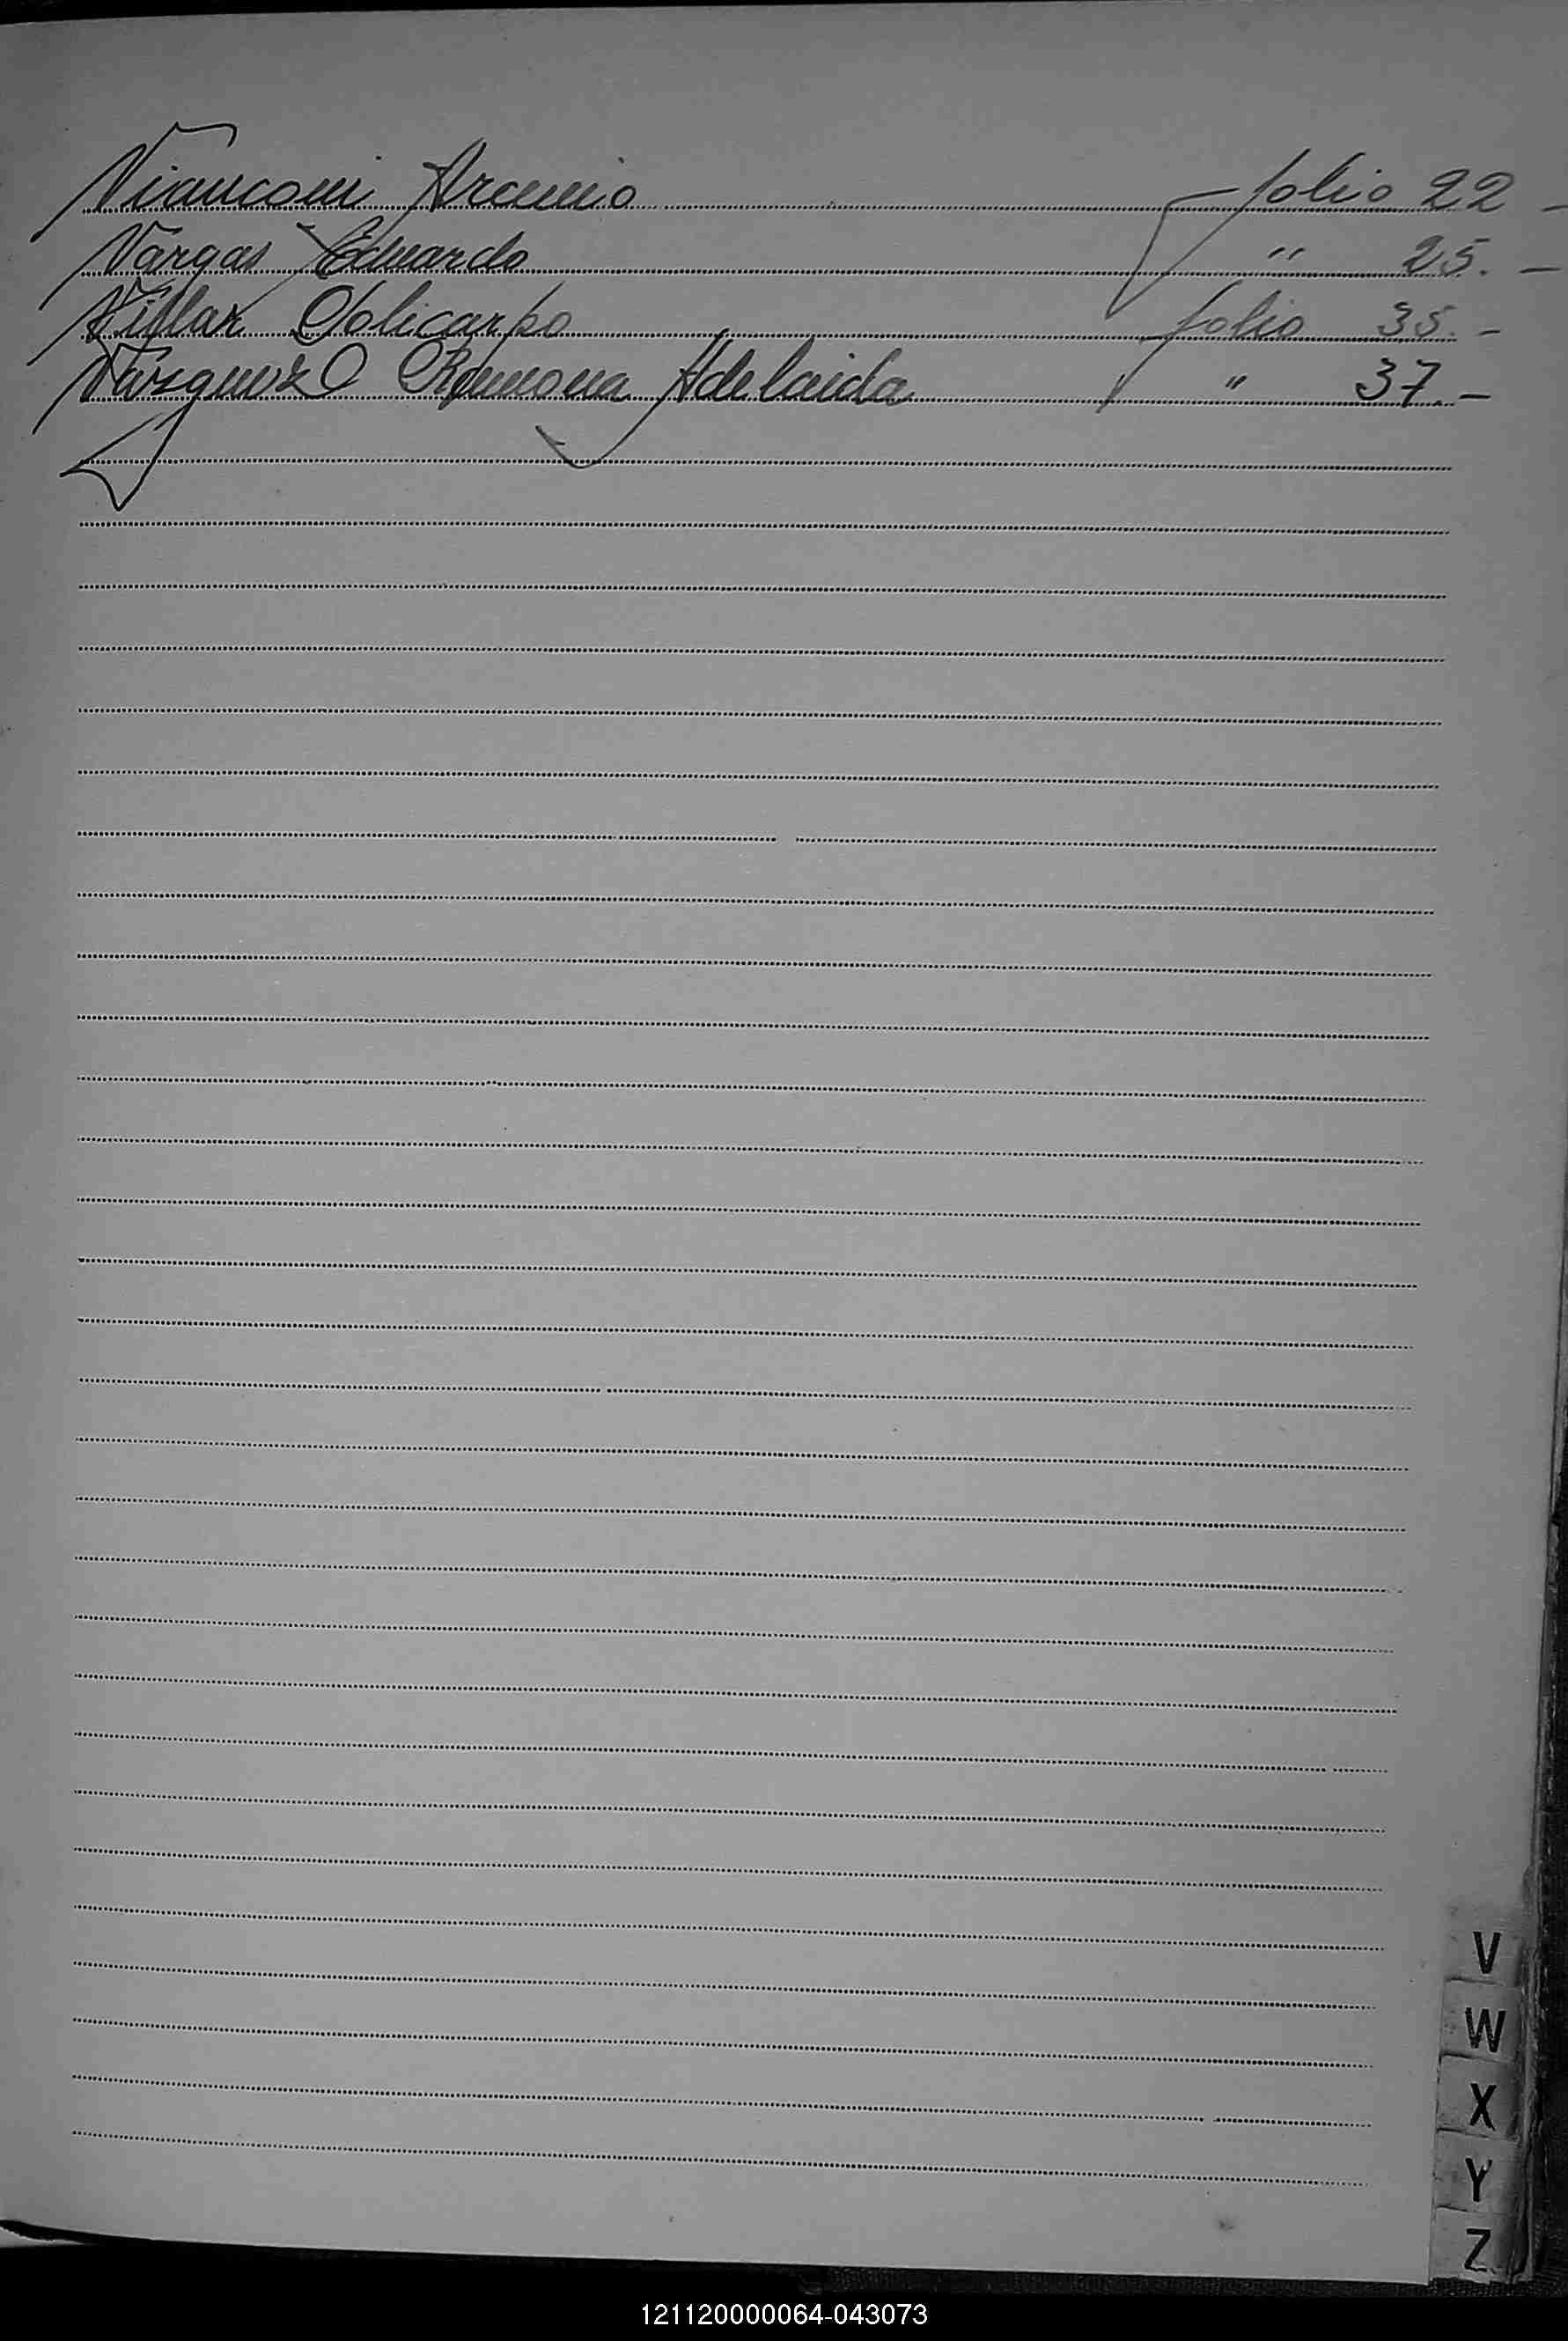 Vianconi Arcenio folio 22 -
Vargas Eduardo " 25. -
Villar Policarpo folio 35. -
Vazquez Ramona Adelaida " 37. -
V
W
X
Y
Z
121120000064-043073